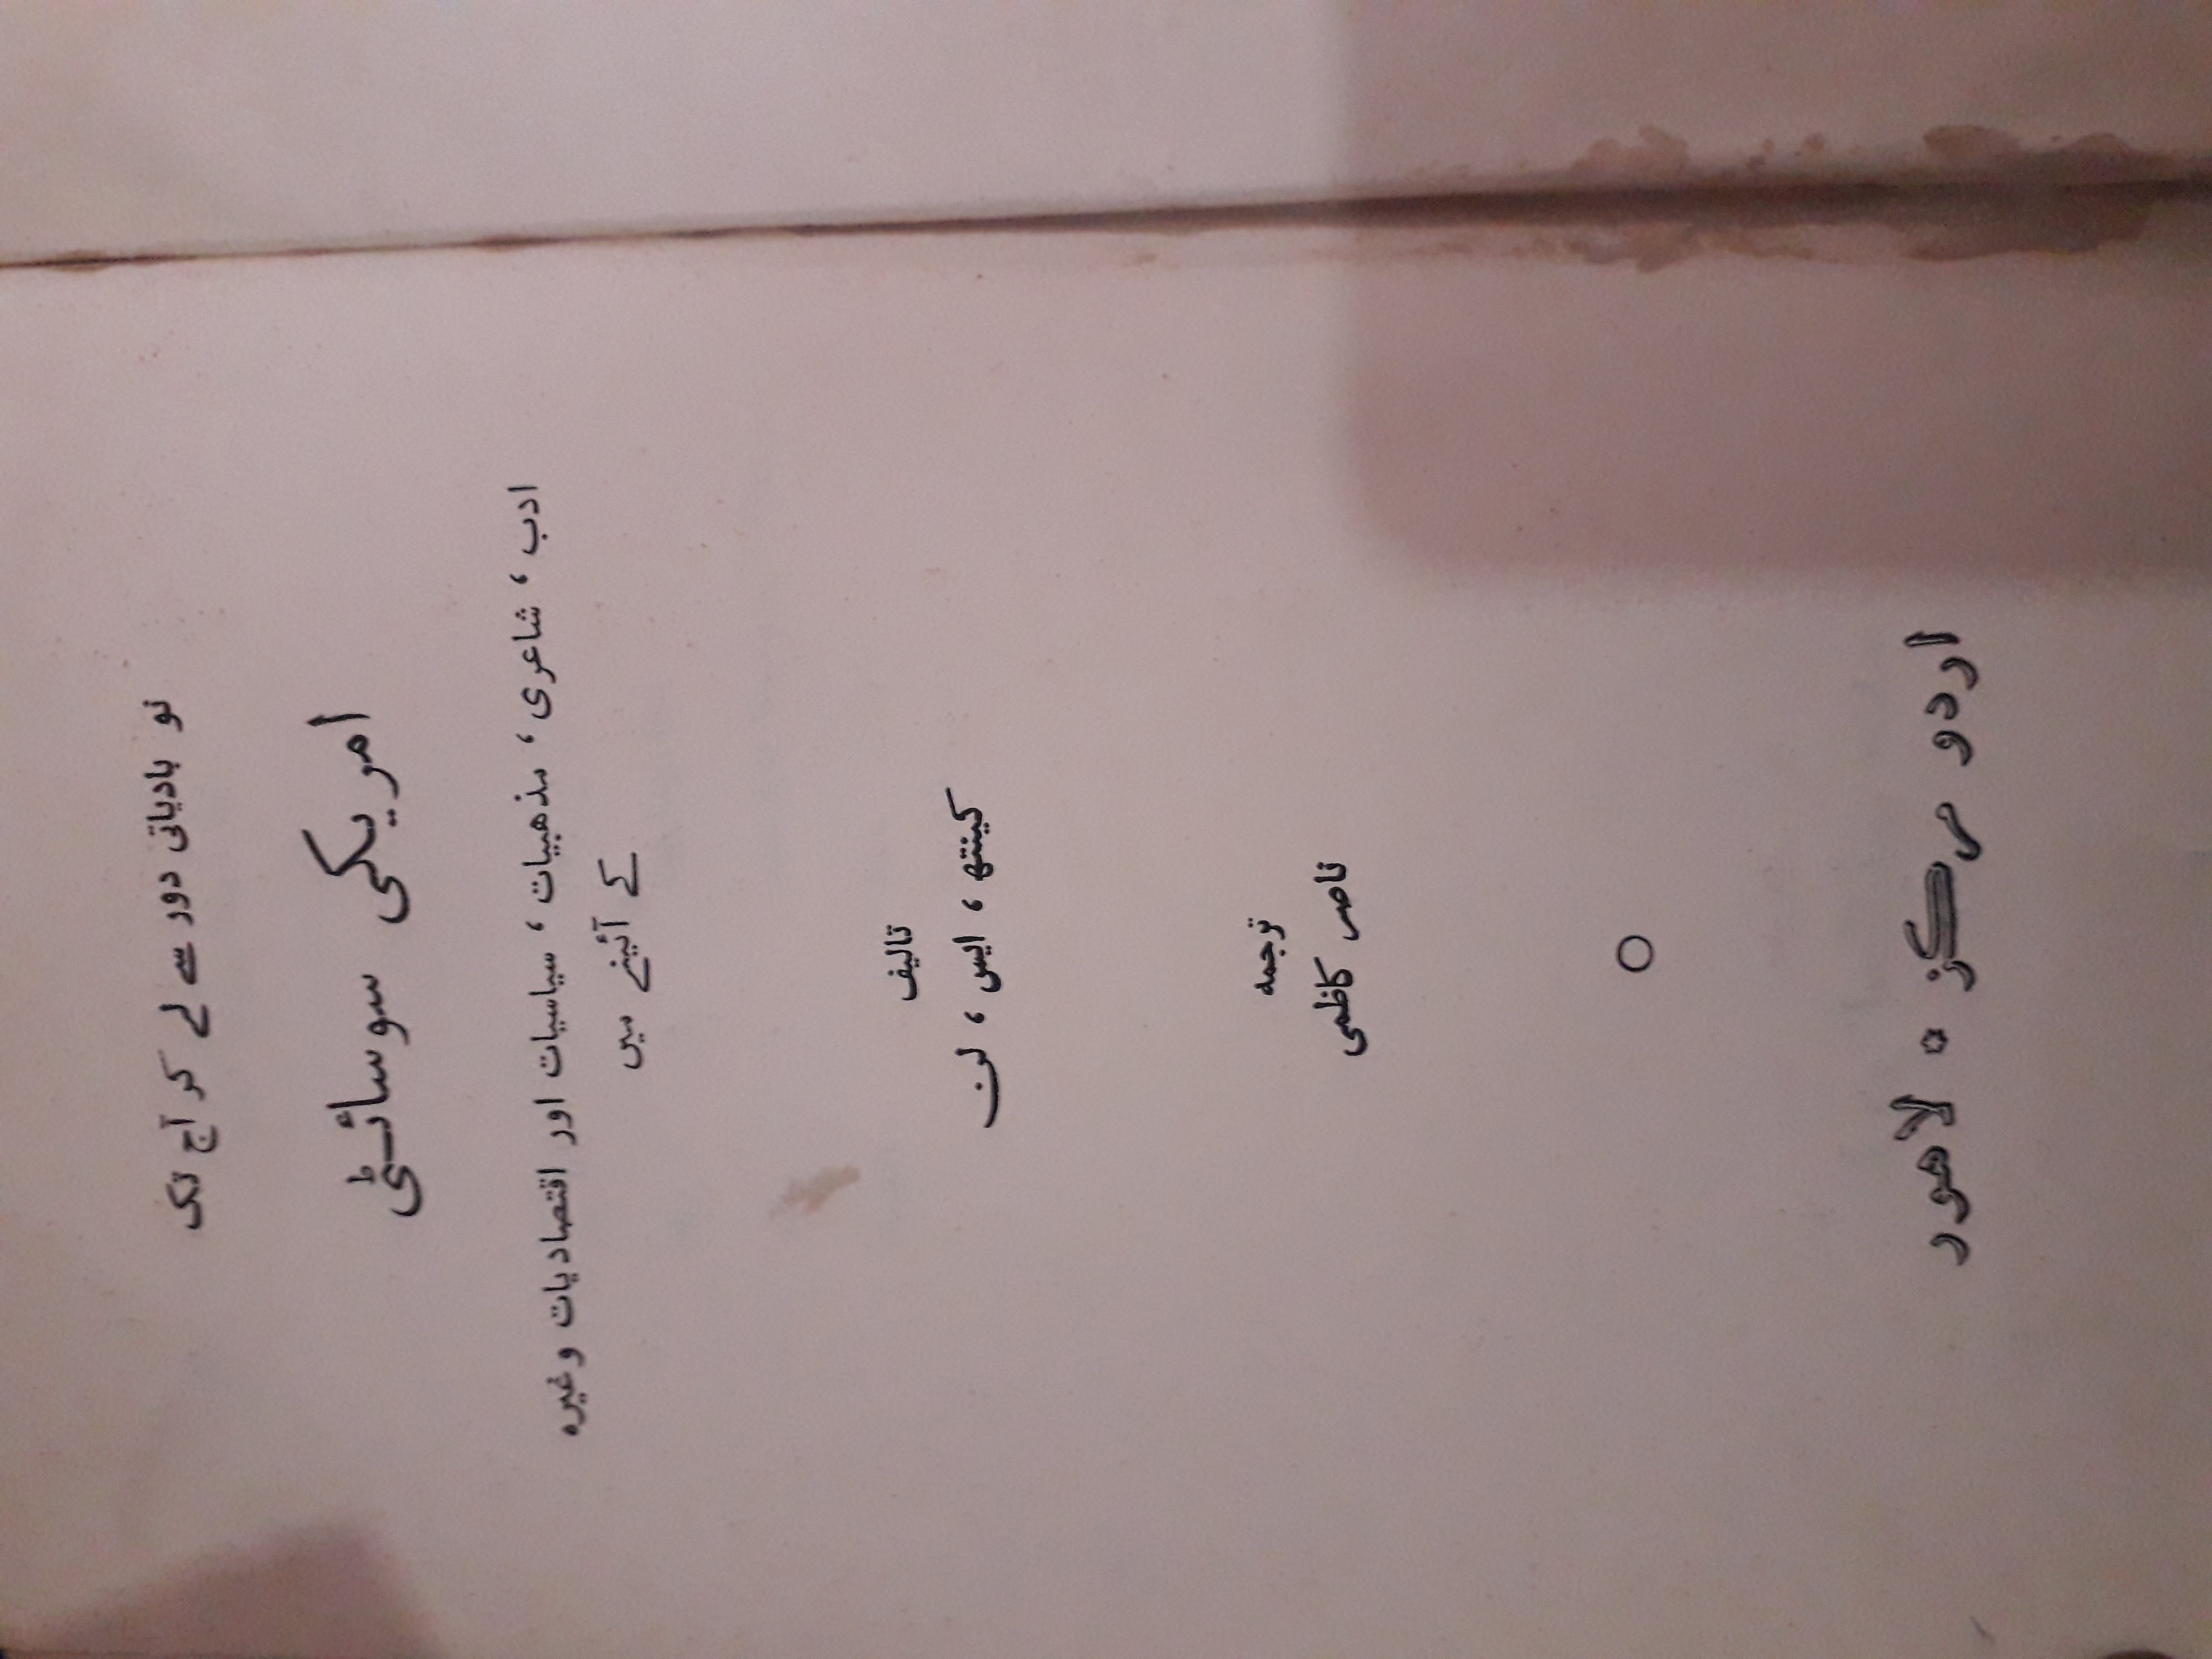 نو بادیاتی دور سے لے کر آج تک
امریکی سوسائٹی
ادب ، شاعری ، مذهبیات ، سیاسیات اور اقتصادیات وغیرہ
کے آئینے میں
تالیف
کینتھ ، ایس ، لن
ترجمه
ناصر کاظمی
اردو مرکز ٭ لاهور